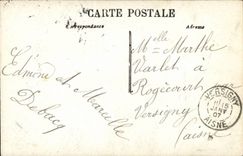 CARTE POSTALE
Correspondance
Adresse
Edmond et Marcelle
Debacq
Mlle Marthe
Varlet à
Rogécourt
Versigny
(aisne
VERSIGNY
JANV
07
AISNE